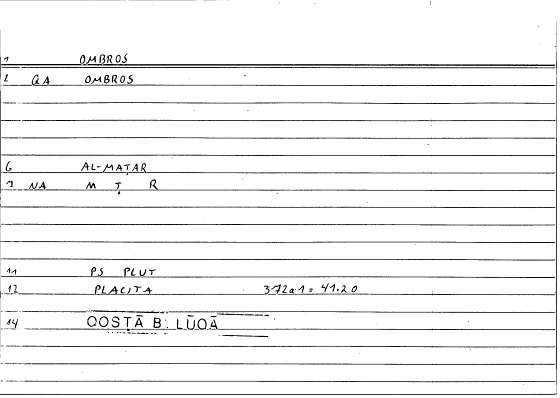 1 OMBROS
2 QA OMBROS
6 AL-MAṬAR
7 NA M Ṭ R
11 PS PLUT
12 PLACITA 372a1 = 41.20
14 QOSṬĀ B. LŪQĀ